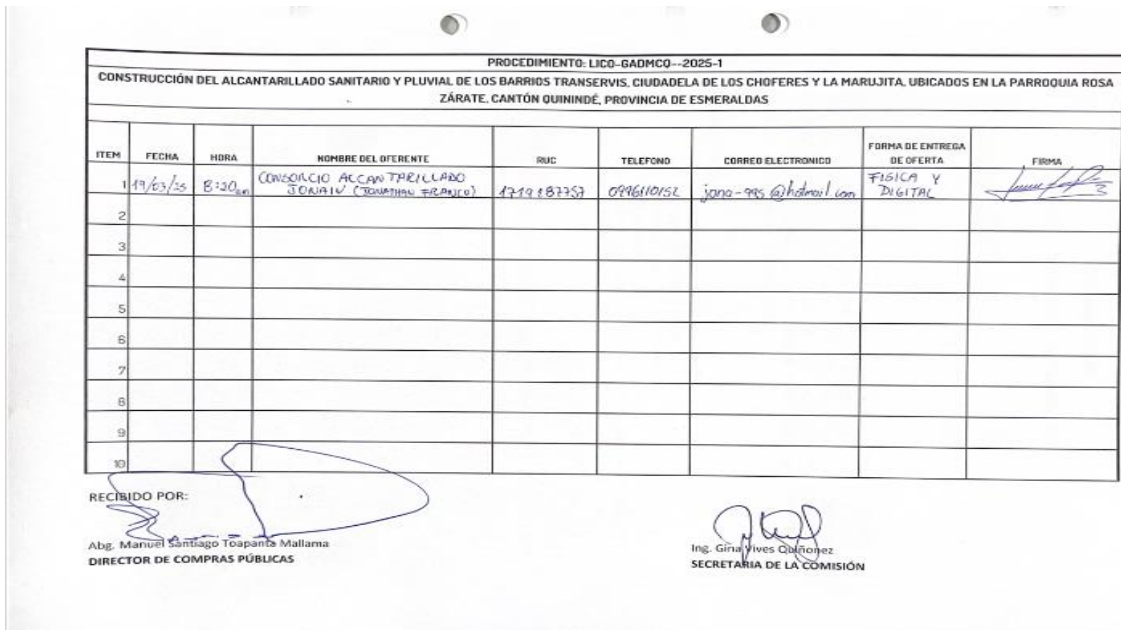 PROCEDIMIENTO: LICO-GADMCQ--2025-1
CONSTRUCCIÓN DEL ALCANTARILLADO SANITARIO Y PLUVIAL DE LOS BARRIOS TRANSERVIS, CIUDADELA DE LOS CHOFERES Y LA MARUJITA, UBICADOS EN LA PARROQUIA ROSA
ZÁRATE, CANTÓN QUININDÉ, PROVINCIA DE ESMERALDAS
ITEM FECHA HORA NOMBRE DEL OFERENTE RUC TELEFONO CORREO ELECTRONICO FORMA DE ENTREGA DE OFERTA FIRMA
1 19/03/25 8:20am CONSORCIO ALCANTARILLADO JONAIV (JONATHAN FRANCO) 0996110152 jona-995@hotmail.com FISICA Y DIGITAL
2
3
4
5
6
7
8
9
10
RECIBIDO POR:
Abg. Manuel Santiago Toapanta Mallama
DIRECTOR DE COMPRAS PÚBLICAS
Ing. Gina Vives Quiñonez
SECRETARIA DE LA COMISIÓN